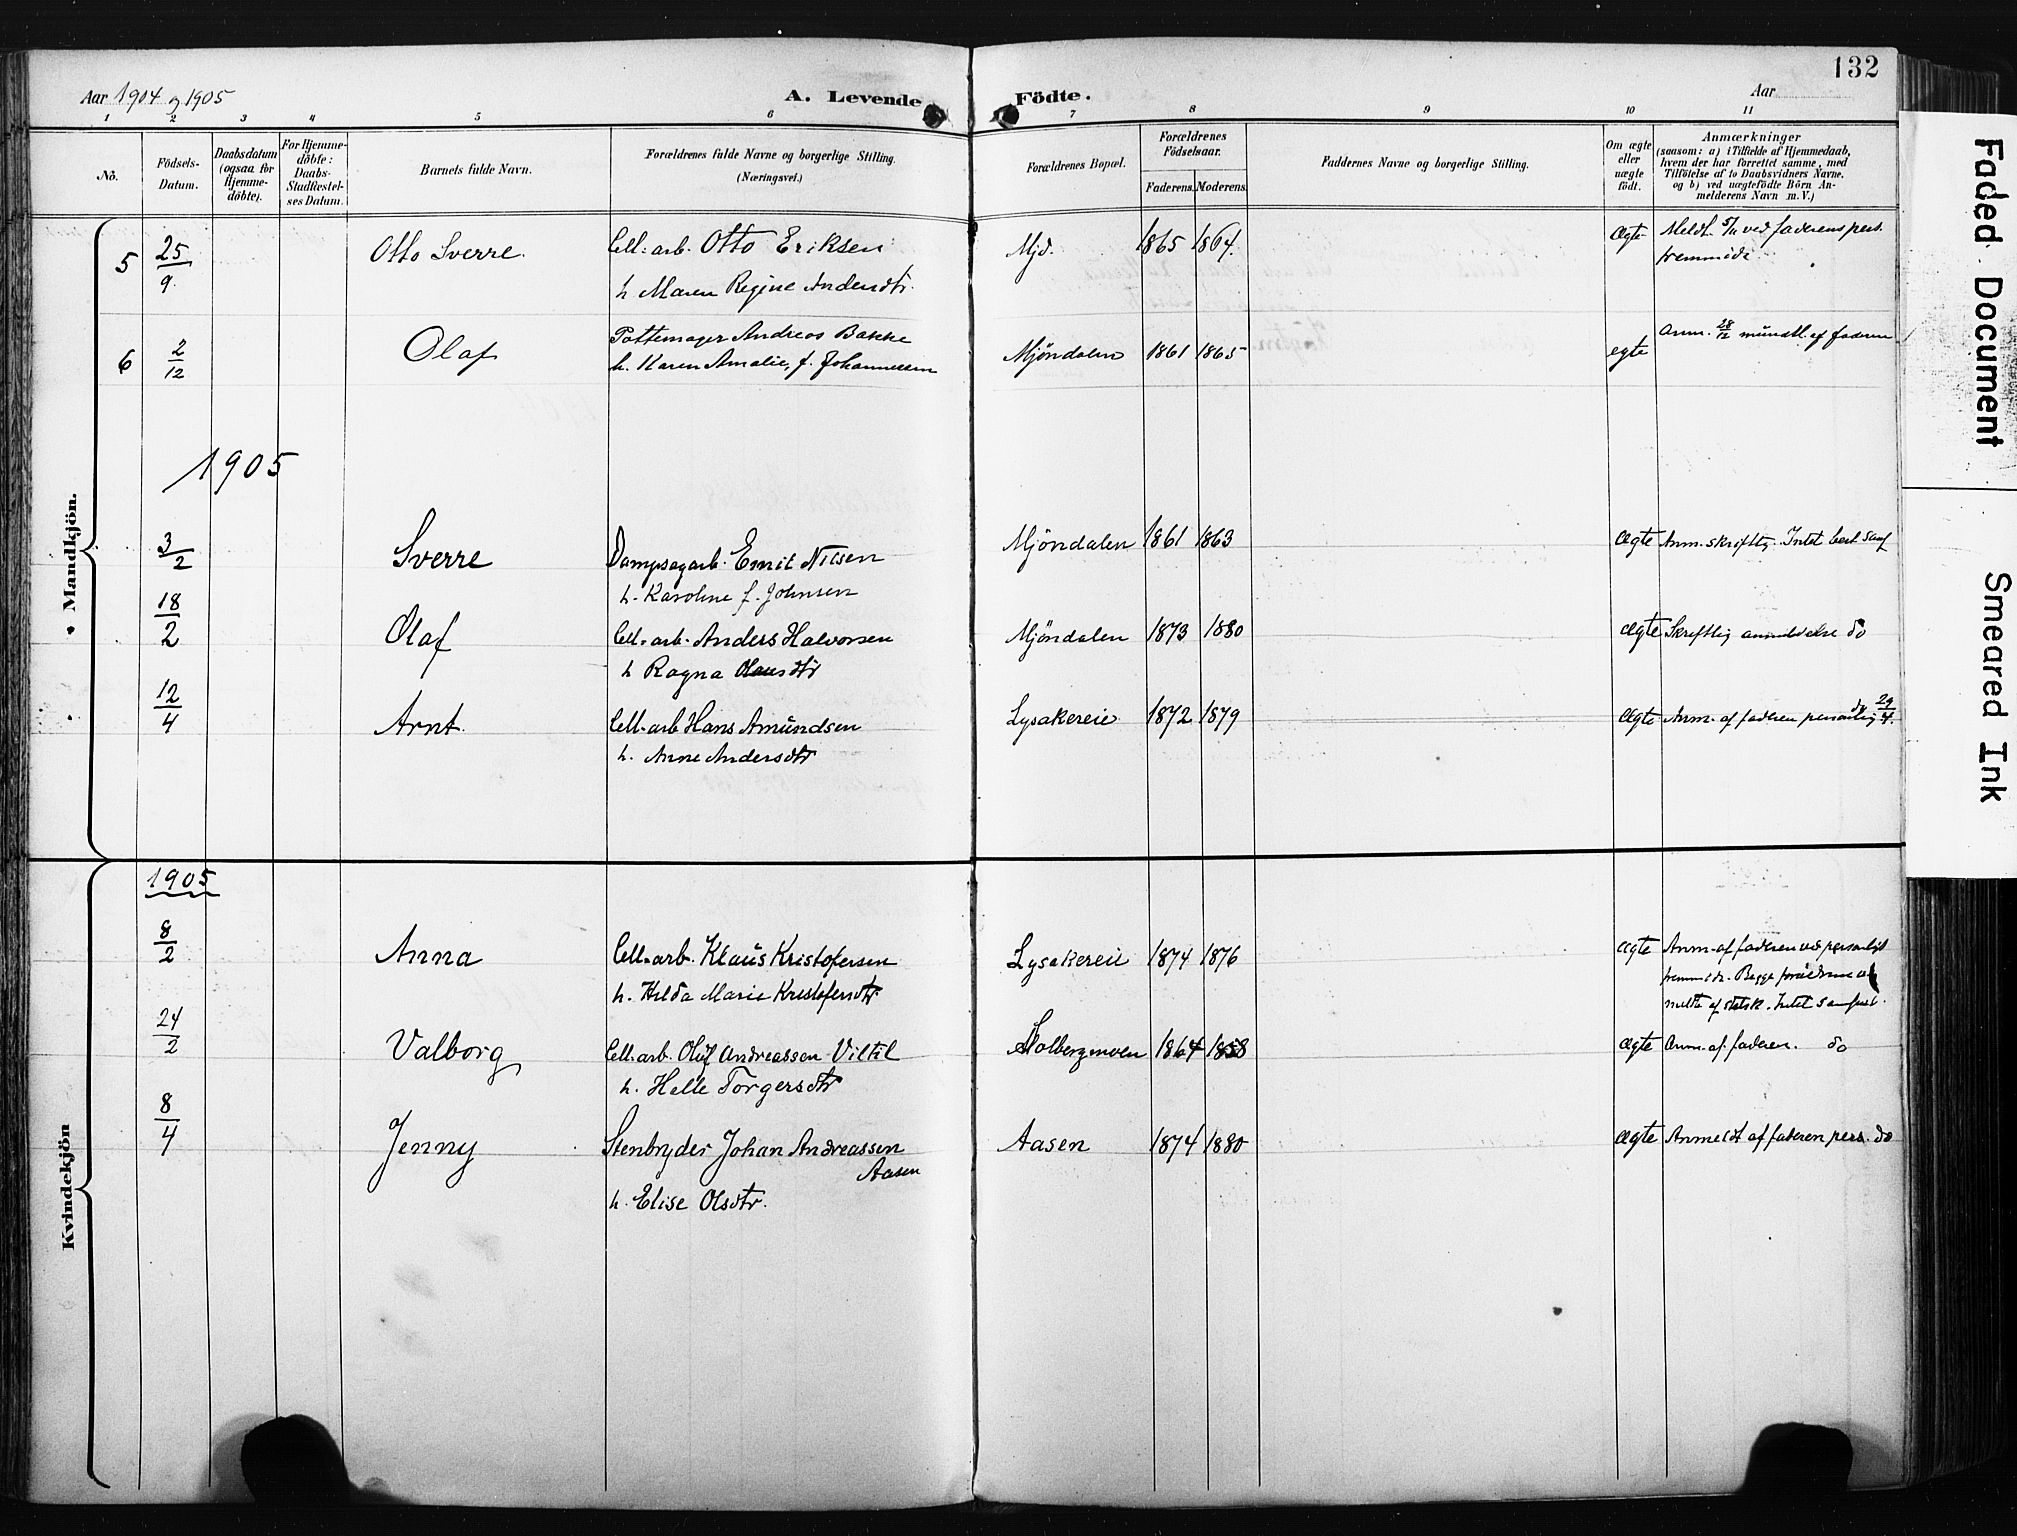 132
Aar 1904 og 1905
A. Levende Födte.
Aar
1 2 3 4 5 6 7 8 9 10 11
No.
Födsels-Datum.
Daabsdatum (ogsaa for Hjemme-döbte).
For Hjemme-döbte: Daabs-Stadfæstel-ses Datum.
Barnets fulde Navn.
Forældrenes fulde Navne og borgerlige Stilling.
(Næringsvei.)
Forældrenes Bopæl.
Forældrenes Födselsaar.
Faderens. Moderens.
Faddernes Navne og borgerlige Stilling.
Om ægte eller uægte födt.
Anmærkninger
(saasom: a) i Tilfælde af Hjemmedaab,
hvem der har forrettet samme, med
Tilföielse af to Daabsvidners Navne.
og b) ved uægtefödte Börn An-
melderens Navn m. V.)
Mandkjön.
5 25/9 Otto Sverre. Cell. arb. Otto Eriksen Mjd. 1865 1864. Ægte Meldt ved faderens pers.
h Maren Regine Andersdtr. fremmöde
6 2/12 Olaf Pottemager Andreas Bakke Mjöndalen 1861 1865 egte Anm. 28/12 mundtl. af faderen
h. Karen Amalie, f. Johannessen
1905
3/2 Sverre Dampsagarb. Emil Nilsen Mjöndalen 1861 1863 Ægte Anm. skriftlig. Intet
h. Karoline f. Johnsen
18/2 Olaf Cell. arb. Anders Halvorsen Mjöndalen 1873 1880 Ægte Skriftlig anmeldelse do
h Ragna Olausdtr
12/4 Arnt. Cell. arb Hans Amundsen Lysakereie 1872 1879 Ægte Anm. af faderen personlig do 29/4.
h. Anne Andersdtr
Kvindekjön
1905
8/2 Anna Cell. arb. Klaus Kristofersen Lysakereie 1874 1876 Ægte Anm. af faderen ved personligt
h. Hilda Marie Kristofersdtr fremmöde. Begge forældrene
meldte af statsk. Intet
24/2 Valborg Cell. arb. Oluf Andreassen Viltil Stolbergmoen 1864 1858 Ægte Anm. af faderen. do
h. Helle Torgersdtr
8/4 Jenny Stenbryder Johan Andreassen Aasen Aasen 1874 1880 Ægte Anmeldt af faderen pers. do
h. Elise Olsdtr.
Faded Document
Smeared Ink